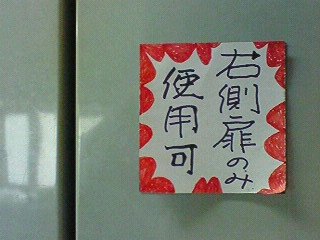 右側扉のみ
使用可